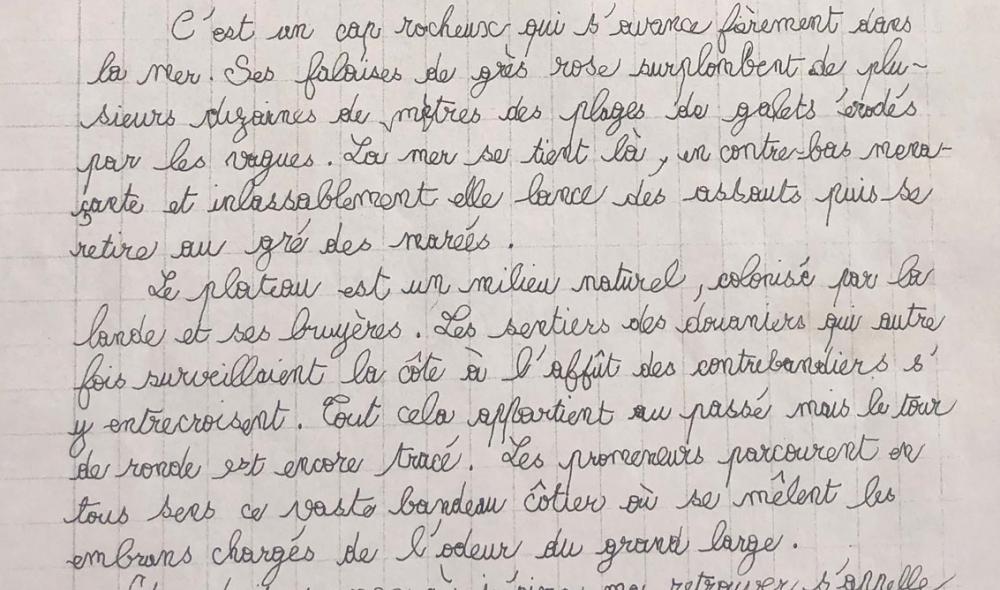 C'est un cap rocheux qui s'avance fièrement dans
la mer. Ses falaises de grès rose surplombent de plu-
sieurs dizaines de mètres des plages de galets érodés
par les vagues. La mer se tient là, en contre-bas mena-
çante et inlassablement elle lance des assauts puis se
retire au gré des marées.
Le plateau est un milieu naturel, colonisé par la
lande et ses bruyères. Les sentiers des douaniers qui autre
fois surveillaient la côte à l'affût des contrebandiers s'
y entrecroisent. Tout cela appartient au passé mais le tour
de ronde est encore tracé. Les promeneurs parcourent en
tous sens ce vaste bandeau côtier où se mêlent les
embruns chargés de l'odeur du grand large.
retrouver s'appelle